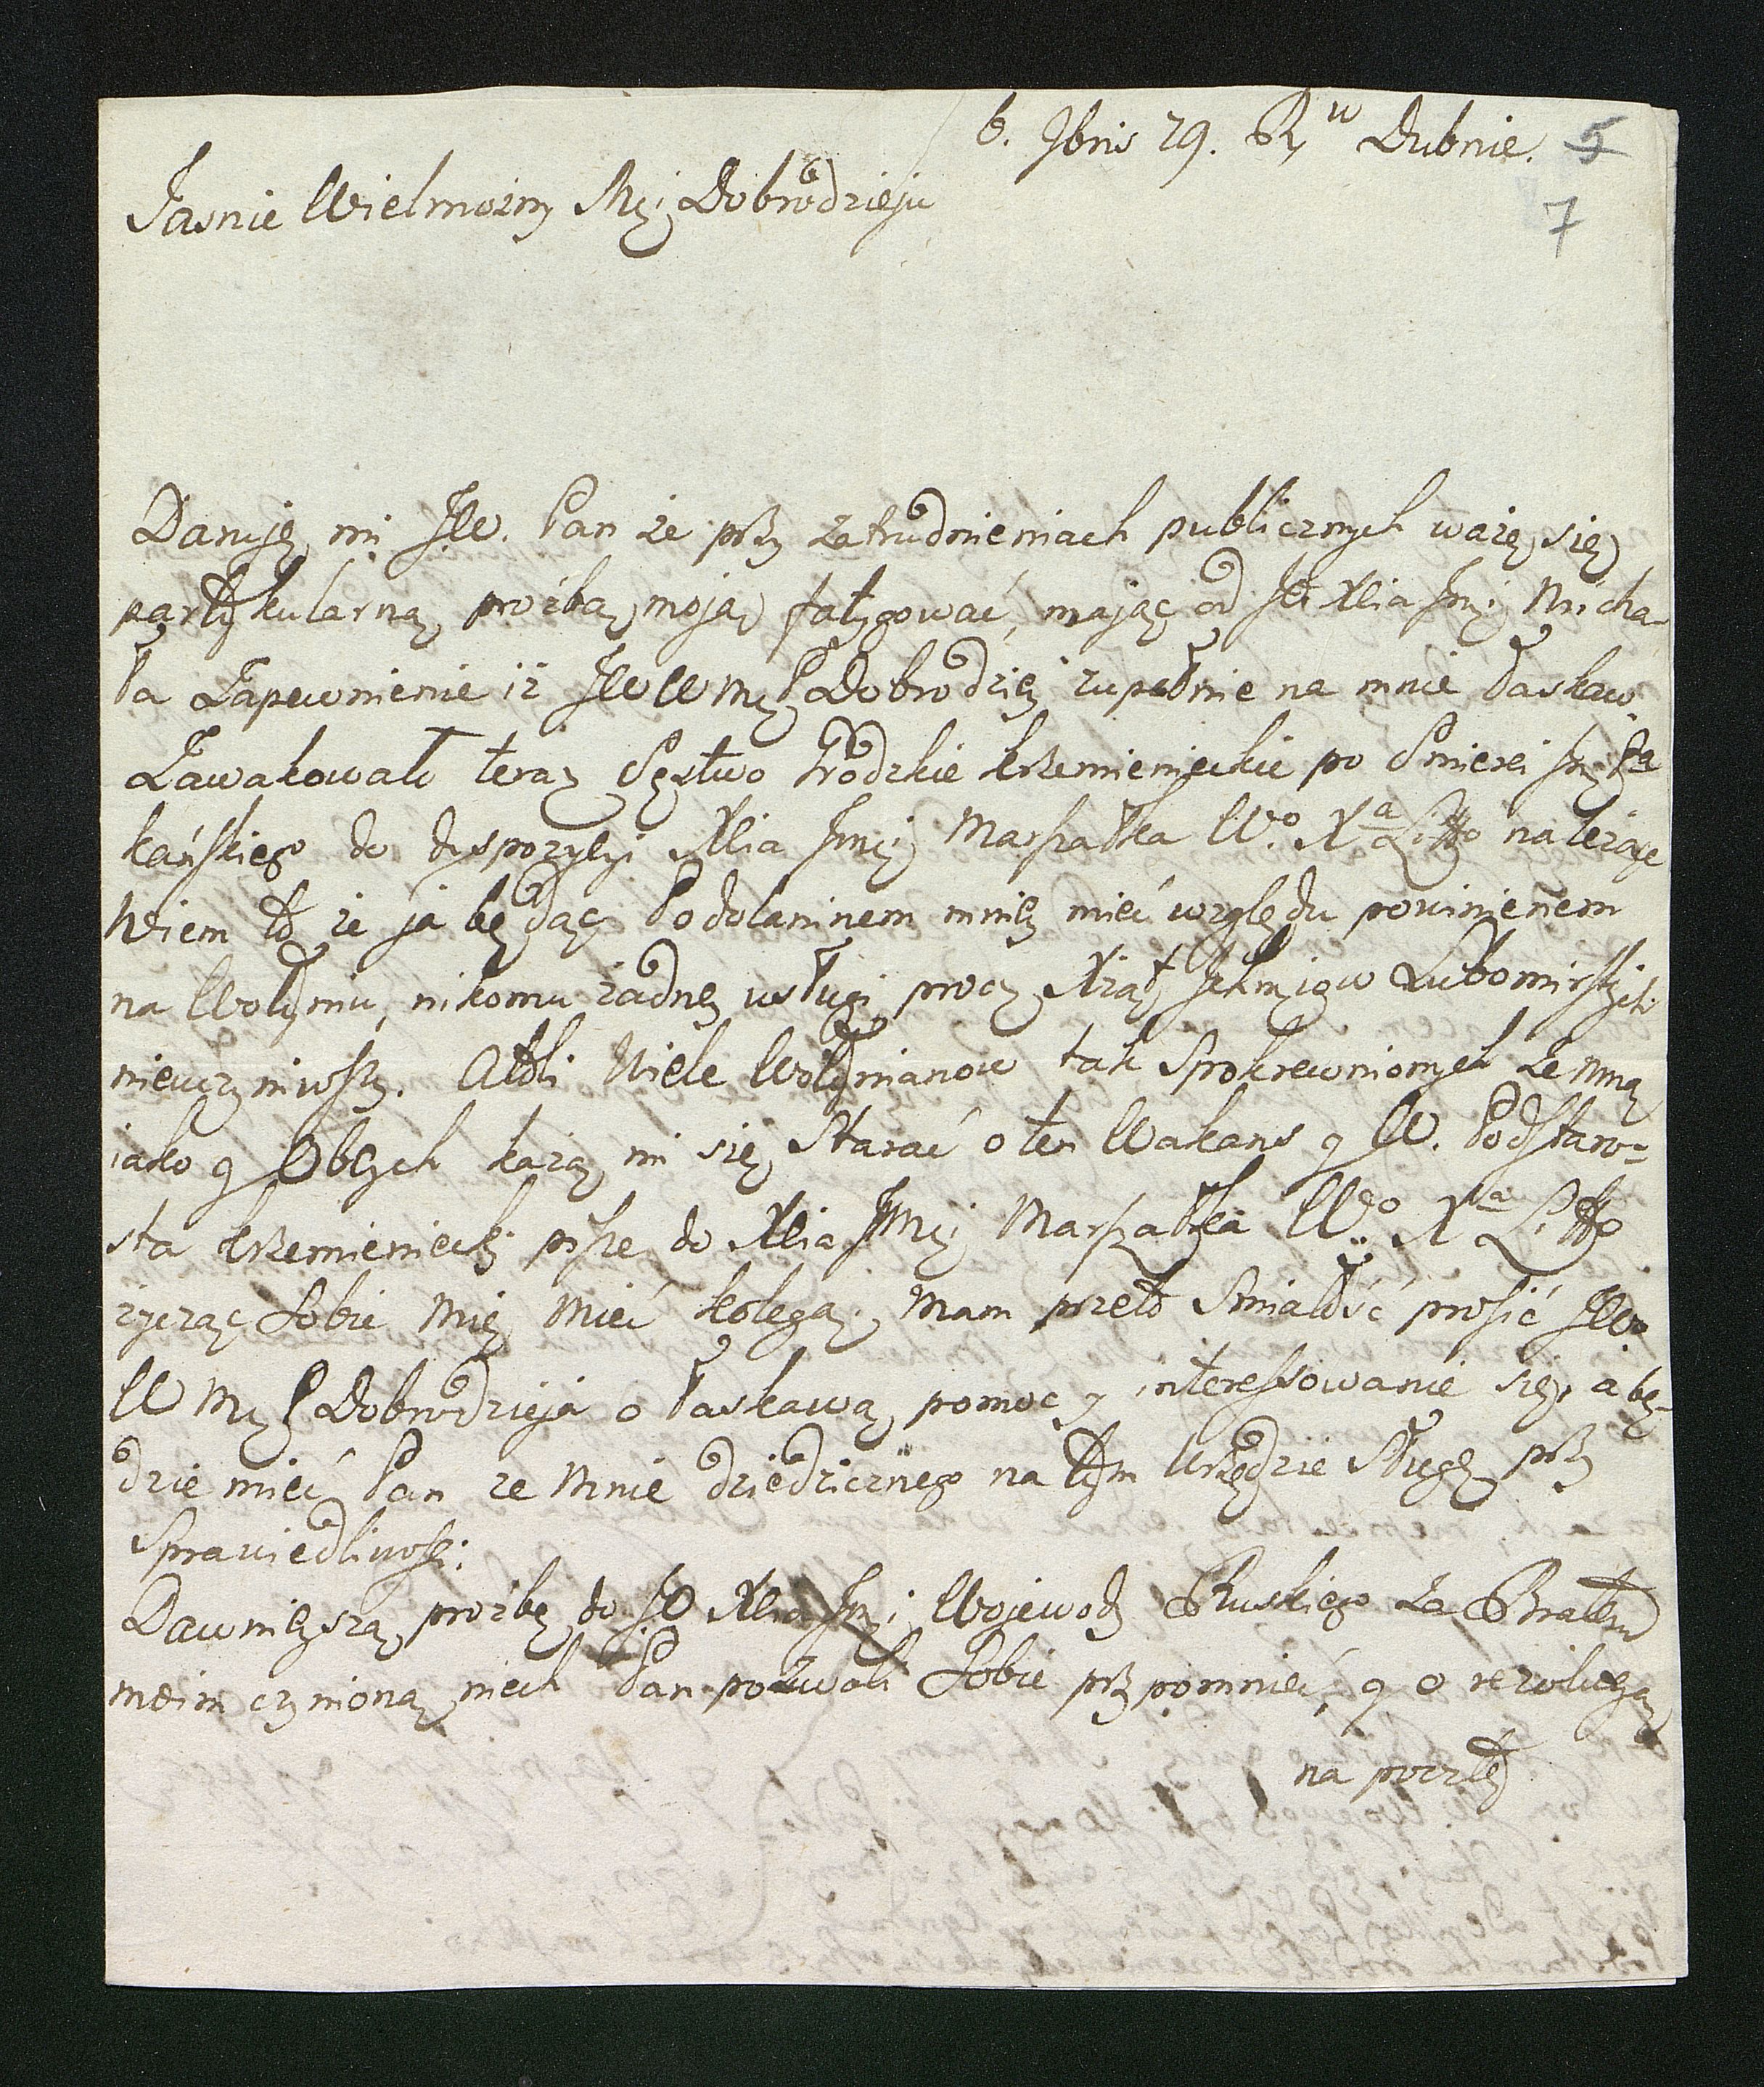 6. Jbris 29. R, w Dubnie. 5
7
Jasnie Wielmozny Mci Dobrodzieju
Daruję mi JW. Pan że przy zatrudnieniach publicznych ważę się
partykularną proźbą moją fatygować, mając od JO Xcia Jmci Micha-
ła Zapewnienie iż JWWMP Dobrodziej zupełnie na mnie łaskaw.
Zawakowało teraz Sęstwo Grodzkie krzemienieckie po Smierci Jmci Pa
kańskiego do dyspozycyi Xcia Jmci Marszałka Wo. Xa Litto należące
Wiem to że ja będąc Podolaninem mniej mieć względu powinienem
na Wołyniu, nikomu żadnej usługi procz Xiąt Jchmciow Lubomirskich
nieuczyniwszy. Atoli Wiele Wołynianow tak Spokrewnionych ze mną
iako y Obcych każą mi się Starać o ten Wakans y W. Podstaro=
sta krzemieniecki pisze do Xcia JMci Marszałka Wo Xa Litto
życząc Sobie Mię Mieć kolegą. Mam przeto Smiałość prosić JW.
WMP Dobrodzieja o łaskawą pomoc y interessowanie się, a bę-
dzie mieć Pan ze Mnie dziedzicznego na tym Urzędzie Sługę przy
Sprawiedliwości.
Dawniejszą proźbę do JO Xcia Jmci Wojewody Ruskiego za Bratem
moim czynioną niech Pan pozwoli Sobie przypomnieć, y o rezolucyą
na pocztę